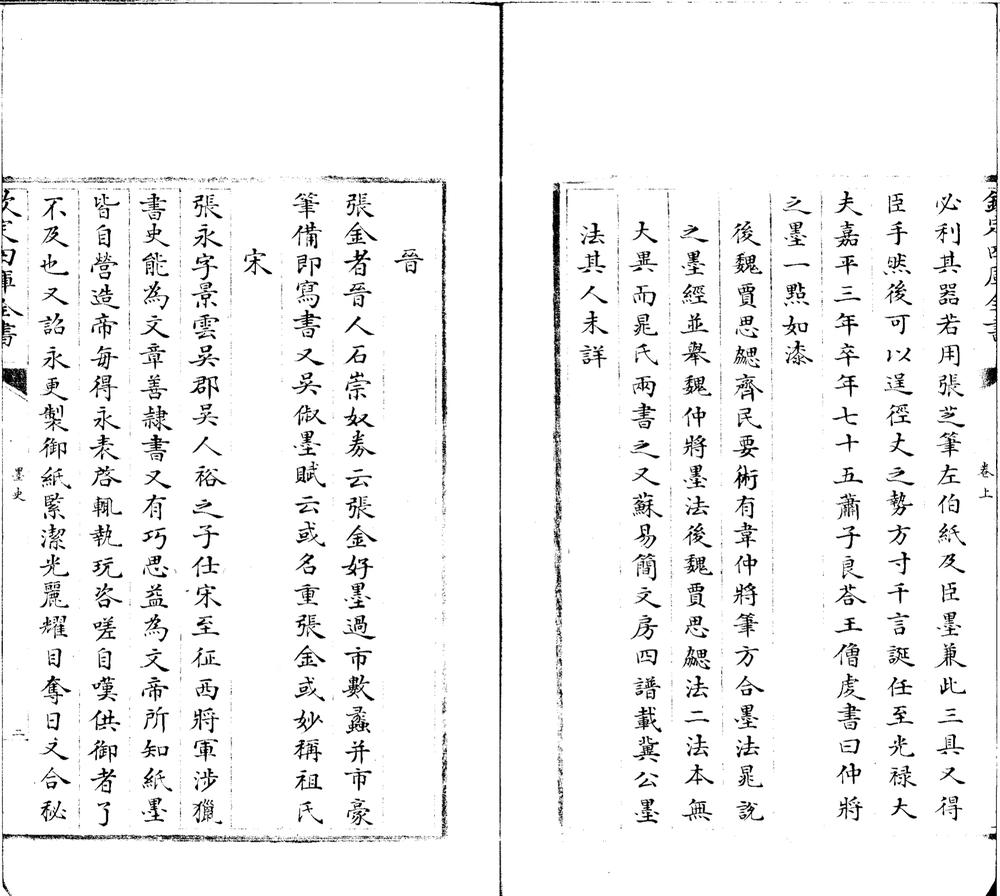 欽定四庫全書
卷上
必利其器若用張芝筆左伯紙及臣墨兼此三具又得
臣手然後可以逞徑丈之勢方寸千言誕任至光禄大
夫嘉平三年卒年七十五蕭子良荅王僧虔書曰仲將
之墨一點如漆
後魏賈思勰齊民要術有韋仲將筆方合墨法晁說
之墨經並舉魏仲將墨法後魏賈思勰法二法本無
大異而晁氏兩書之又蘇易簡文房四譜載冀公墨
法其人未詳
晉
張金者晉人石崇奴券云張金好墨過市數蠡并市豪
筆備即寫書又吳俶墨賦云或名重張金或妙稱祖氏
宋
張永字景雲吳郡吳人裕之子仕宋至征西將軍涉獵
書史能為文章善隸書又有巧思益為文帝所知紙墨
皆自營造帝每得永表啓輒執玩咨嗟自嘆供御者了
不及也又詔永更製御紙緊潔光麗耀目奪日又合秘
欽定四庫全書
墨史
二